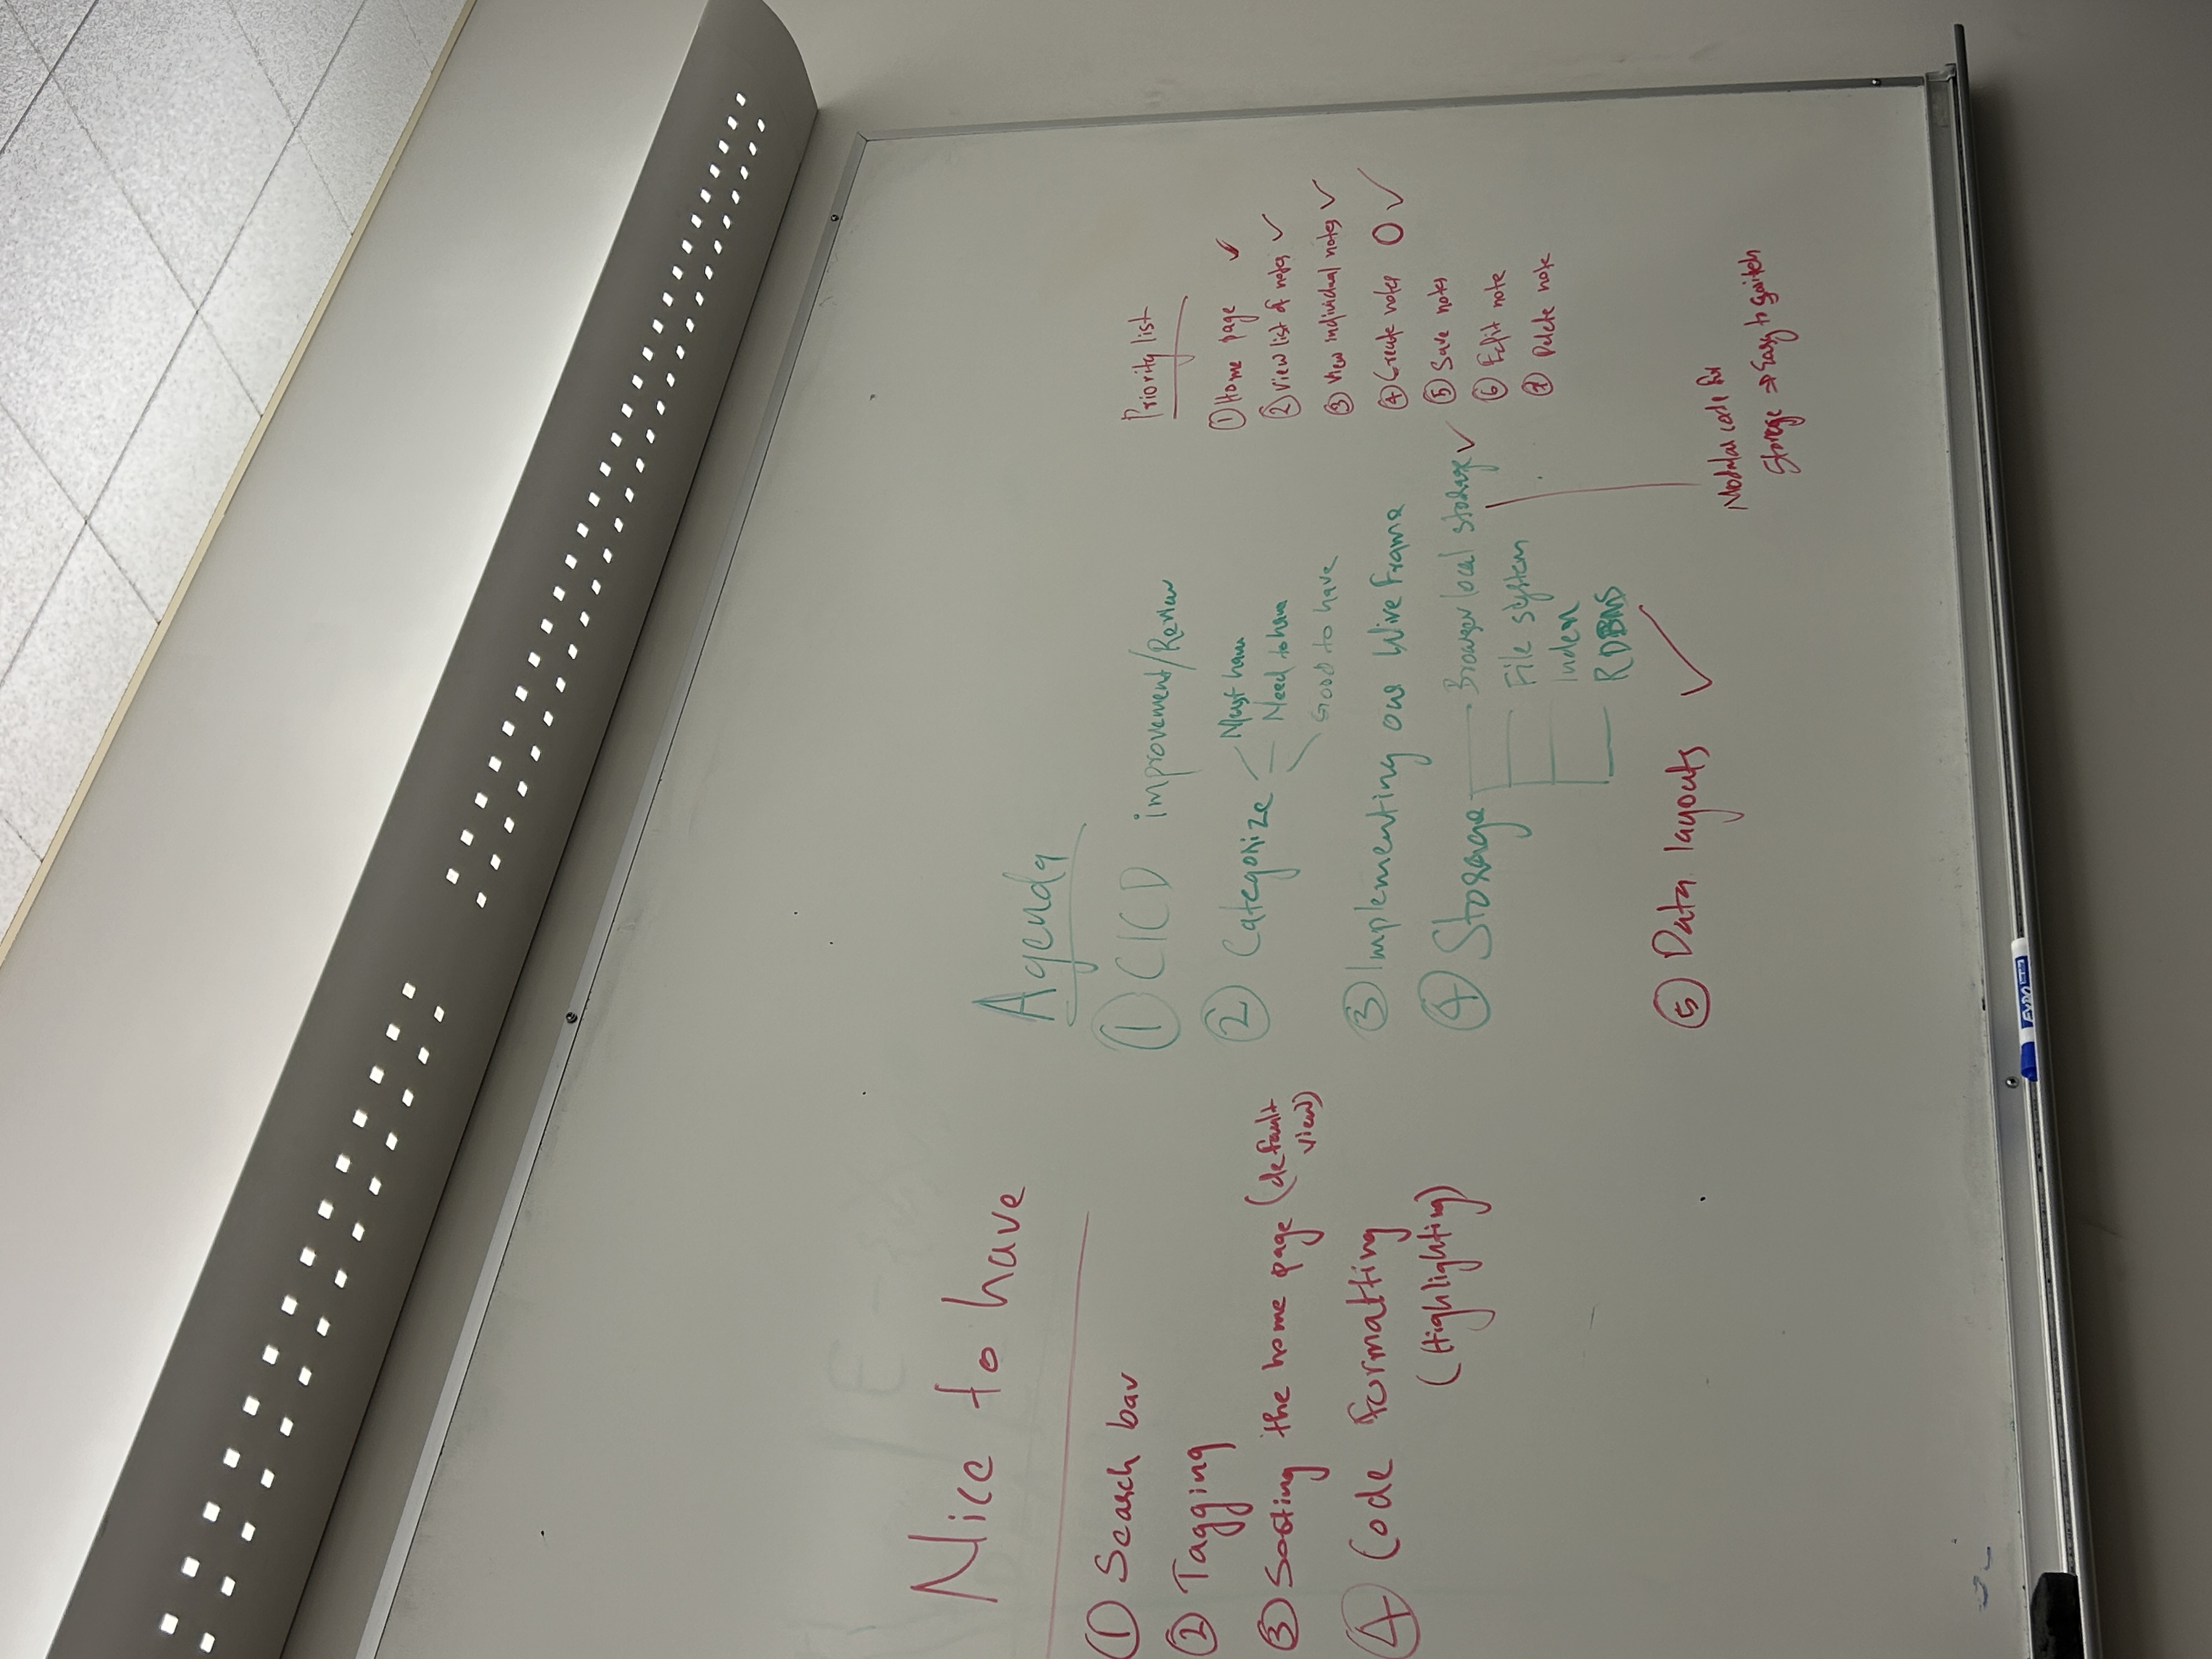 Nice to have
① Search bar
② Tagging
③ Sorting the home page (default
view)
④ Code formatting
(Highlighting)
Agenda
① CICD improvement/Review
② Categorize
Must have
Need to have
Good to have
③ Implementing our Wire Frame
④ Storage
Browser local storage ✓
File system
Index
RDBMS
⑤ Data layouts ✓
Priority list
① Home page ✓
② View list of notes ✓
③ View individual notes ✓
④ Create notes O ✓
⑤ Save notes
⑥ Edit note
⑦ Delete note
Modular code for
Storage ⇒ Easy to switch
EXPO